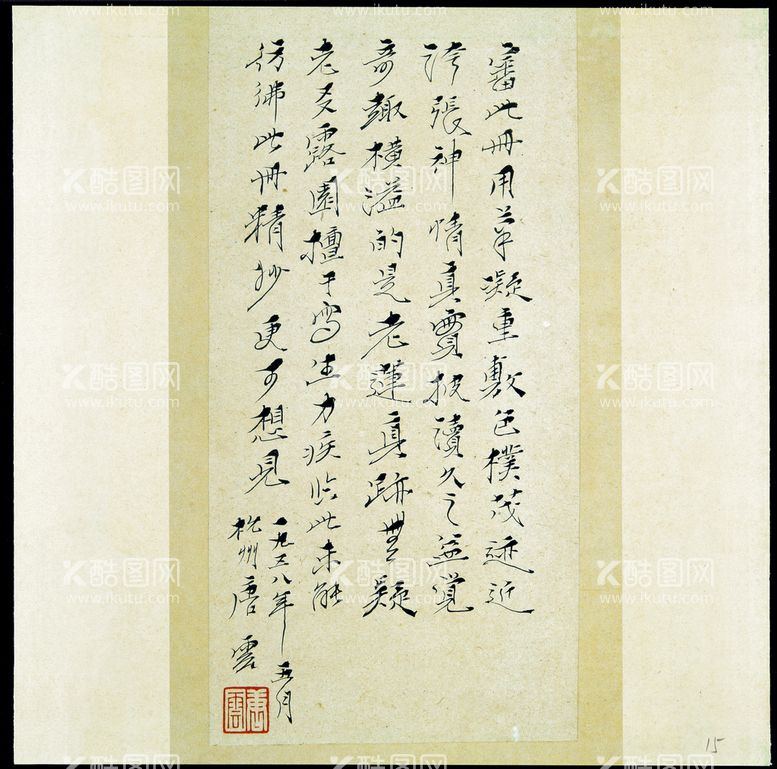 審此冊用筆凝重敷色樸茂迹近
誇張神情真實披讀久之益覺
奇趣橫溢的是老蓮真跡無疑
老友露園擅于寫生力疾临此未能
彷彿此冊精妙更可想見
一九五八年五月
杭州唐雲
唐雲
15
酷图网
www.ikutu.com